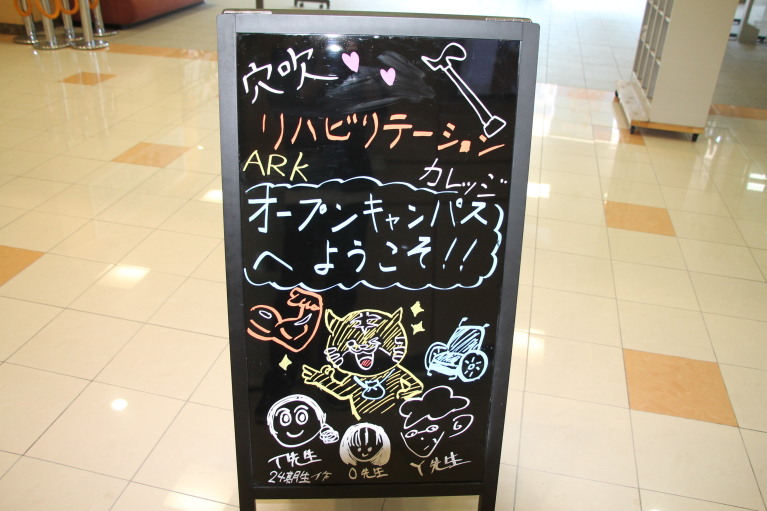 穴吹
リハビリテーション
ARK カレッジ
オープンキャンパス
へ ようこそ!!
T先生 O先生 Y先生
24期生作